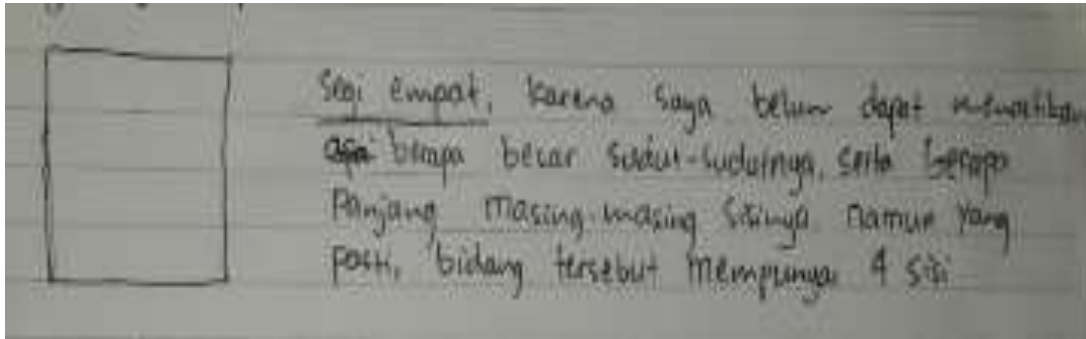 Segi empat, karena saya belum dapat memastikan
berapa besar sudut-sudutnya, serta berapa
Panjang masing-masing sisinya. namun yang
pasti, bidang tersebut mempunyai 4 sisi